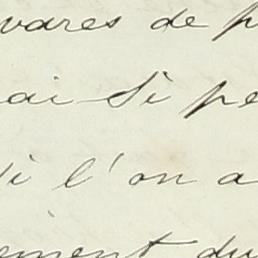 vares de p
ai Si pe
i l'on a
ement du